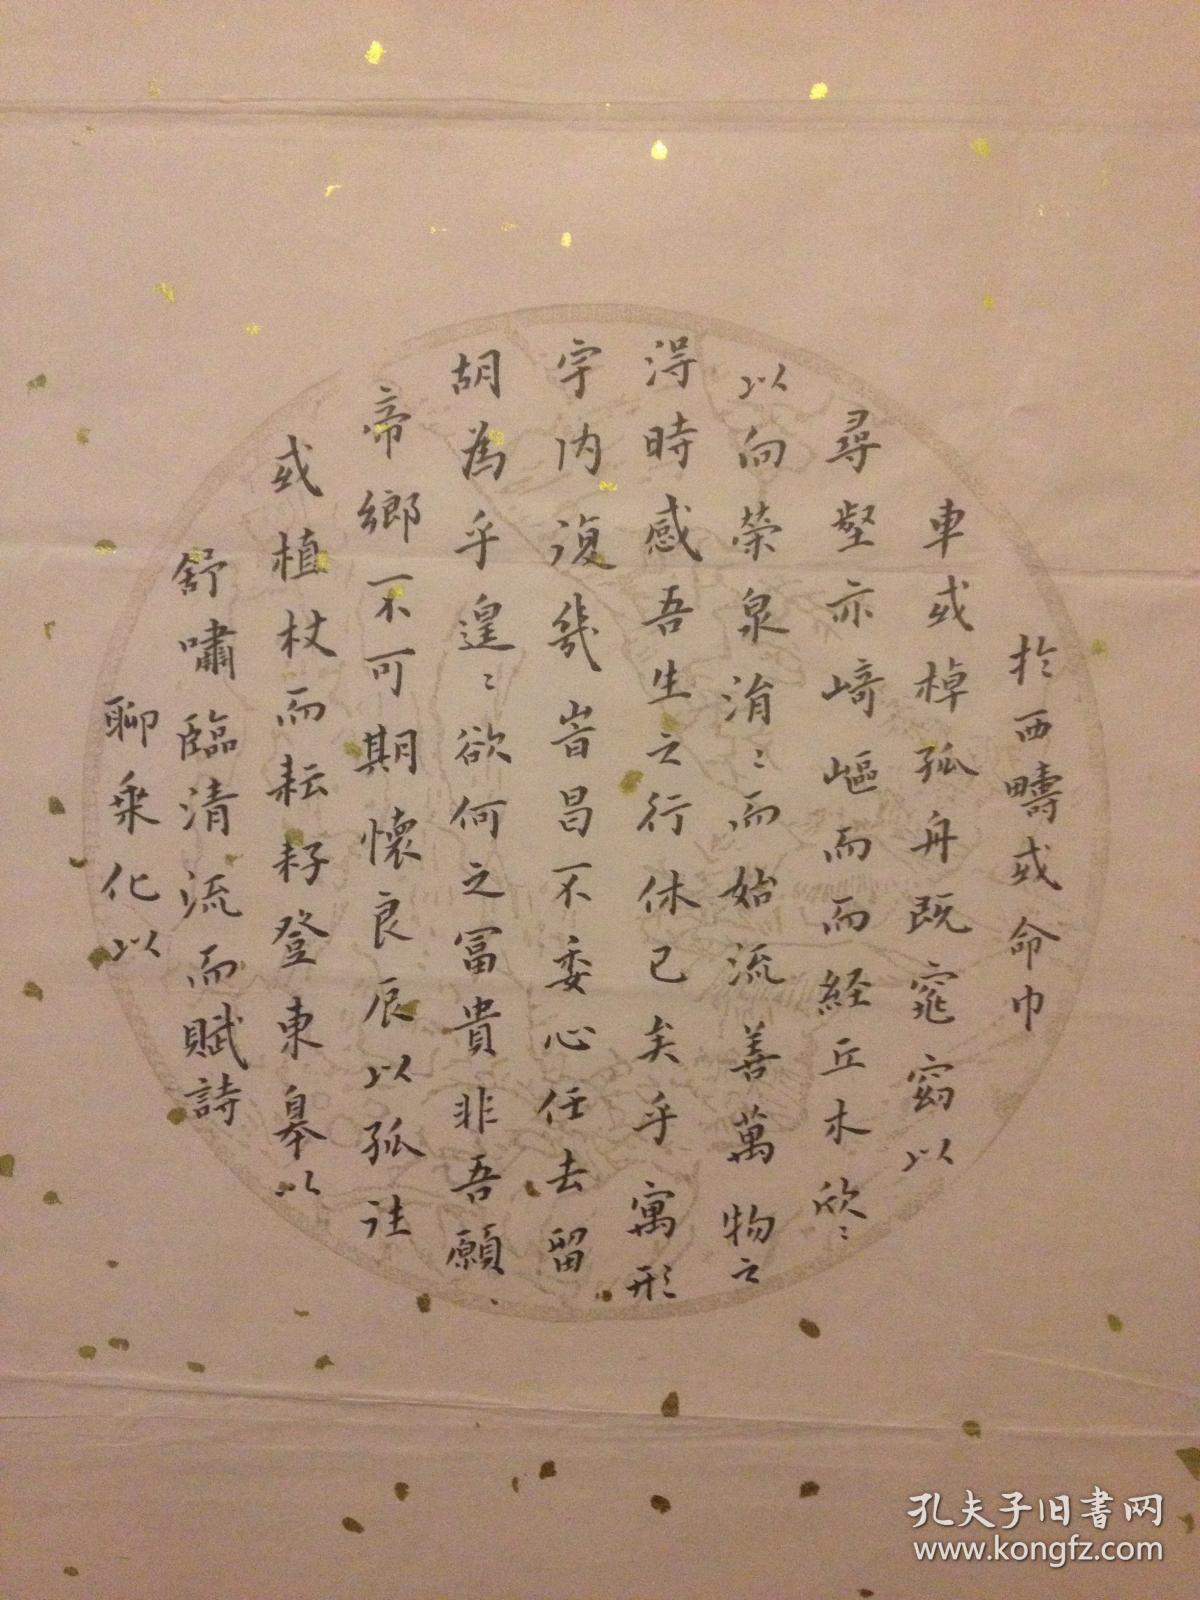 於西疇或命巾
車或棹孤舟既窕窈以
尋壑亦崎嶇而而経丘木欣〻
以向荣泉涓〻而始流善萬物之
淂時感吾生之行休已矣乎寓形
宇内復幾旹昌不委心任去留
胡為乎遑〻欲何之冨貴非吾願
帝鄉不可期懷良辰以孤往
或植杖而耘耔登東皋以
舒嘯臨清流而賦詩
聊乗化以
孔夫子旧书网
www.kongfz.com